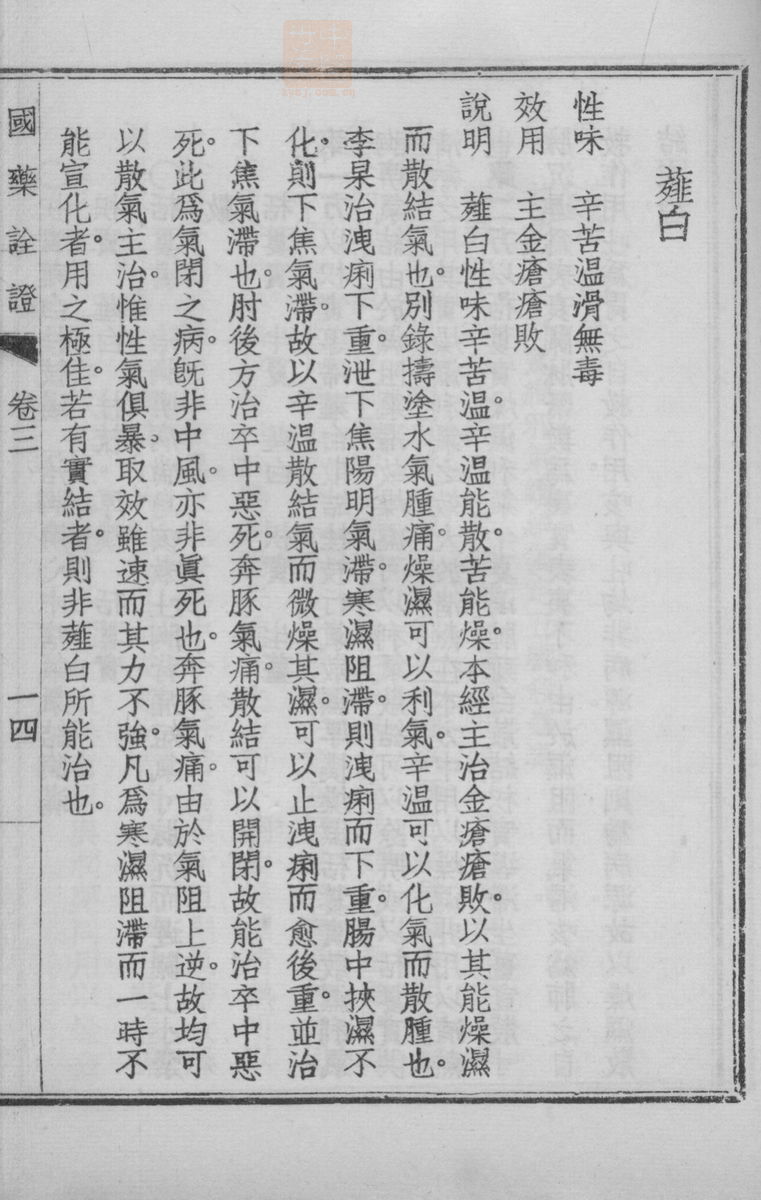 薤白
性味　辛苦温滑無毒
效用　主金瘡瘡敗
說明　薤白性味辛苦温。辛温能散。苦能燥。本經主治金瘡瘡敗。以其能燥濕
而散結氣也。別錄擣塗水氣腫痛。燥濕可以利氣。辛温可以化氣而散腫也。
李杲治洩痢下重。泄下焦陽明氣滯。寒濕阻滯。則洩痢而下重。腸中挾濕不
化。則下焦氣滯。故以辛温散結氣而微燥其濕。可以止洩痢而愈後重。並治
下焦氣滯也。肘後方治卒中惡死。奔豚氣痛。散結可以開閉。故能治卒中惡
死。此爲氣閉之病。旣非中風。亦非眞死也。奔豚氣痛。由於氣阻上逆。故均可
以散氣主治。惟性氣俱暴。取效雖速而其力不強。凡爲寒濕阻滯而一時不
能宣化者。用之極佳。若有實結者。則非薤白所能治也。
國藥詮證　卷三　一四